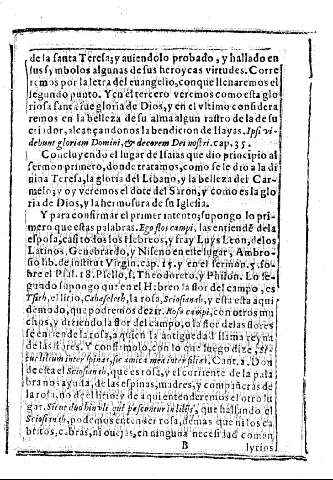 de la santa Teresa; y auiendolo probado, y hallado en
sus symbolos algunas de sus heroycas virtudes. Corre
remos por la letra del euangelio, con que llenaremos el
segundo punto. Y en el tercero veremos como esta glo
riosa santa fue gloria de Dios, y en el vltimo considera
remos en la belleza de su alma algun rastro de la de su
criador, alcançandonos la bendicion de Isayas. Ipsi vi-
debunt gloriam Domini, & decorem Dei nostri. cap. 35.
Concluyendo el lugar de Isaias que dio principio al
sermon primero, donde tratamos, como se le dio a la di
uina Teresa, la gloria del Libano, y la belleza del Car-
melo; y oy veremos el dote del Saron, y como es la glo
ria de Dios, y la hermosura de su Iglesia.
Y para confirmar el primer intento, supongo lo pri-
mero que estas palabras. Ego flos campi, las entiende de la
esposa, casi todos los Hebreos, y fray Luys Leon, de los
Latinos, Genebrardo, y Niseno en este lugar, Ambro-
sio lib. de instit. Virgin. cap. 15. y en el sermon. 5. so-
bre el Psal. 18. Psello, Theodoreto, y Philon. Lo se-
gundo supongo que en el Hebreo la flor del campo, es
el lirio, la rosa, y esta esta aqui
de modo, que podremos dezir. Rosa campi, con otros mu
chos, y diziendo la flor del campo, o la flor de las flores
se entiende la rosa, a quien la antiguedad llama reyna
de las flores. Y confirmolo, con lo que luego dize,
lilium inter spinas, sic amica mea inter filias. Cant. 2. Don
de esta el que es rosa, y el corriente de la pala
bra nos ayuda, de las espinas, madres, y compañeras de
la rosa, no del lirio; y de aqui entenderemos el otro lu
gar. Sicut duo hinuli qui pascuntur in liliis, que hallando el
podemos entender rosa, demas que ni los ca
britos, cabras, ni ouejas, en ninguna necessidad comen
B
lyrios